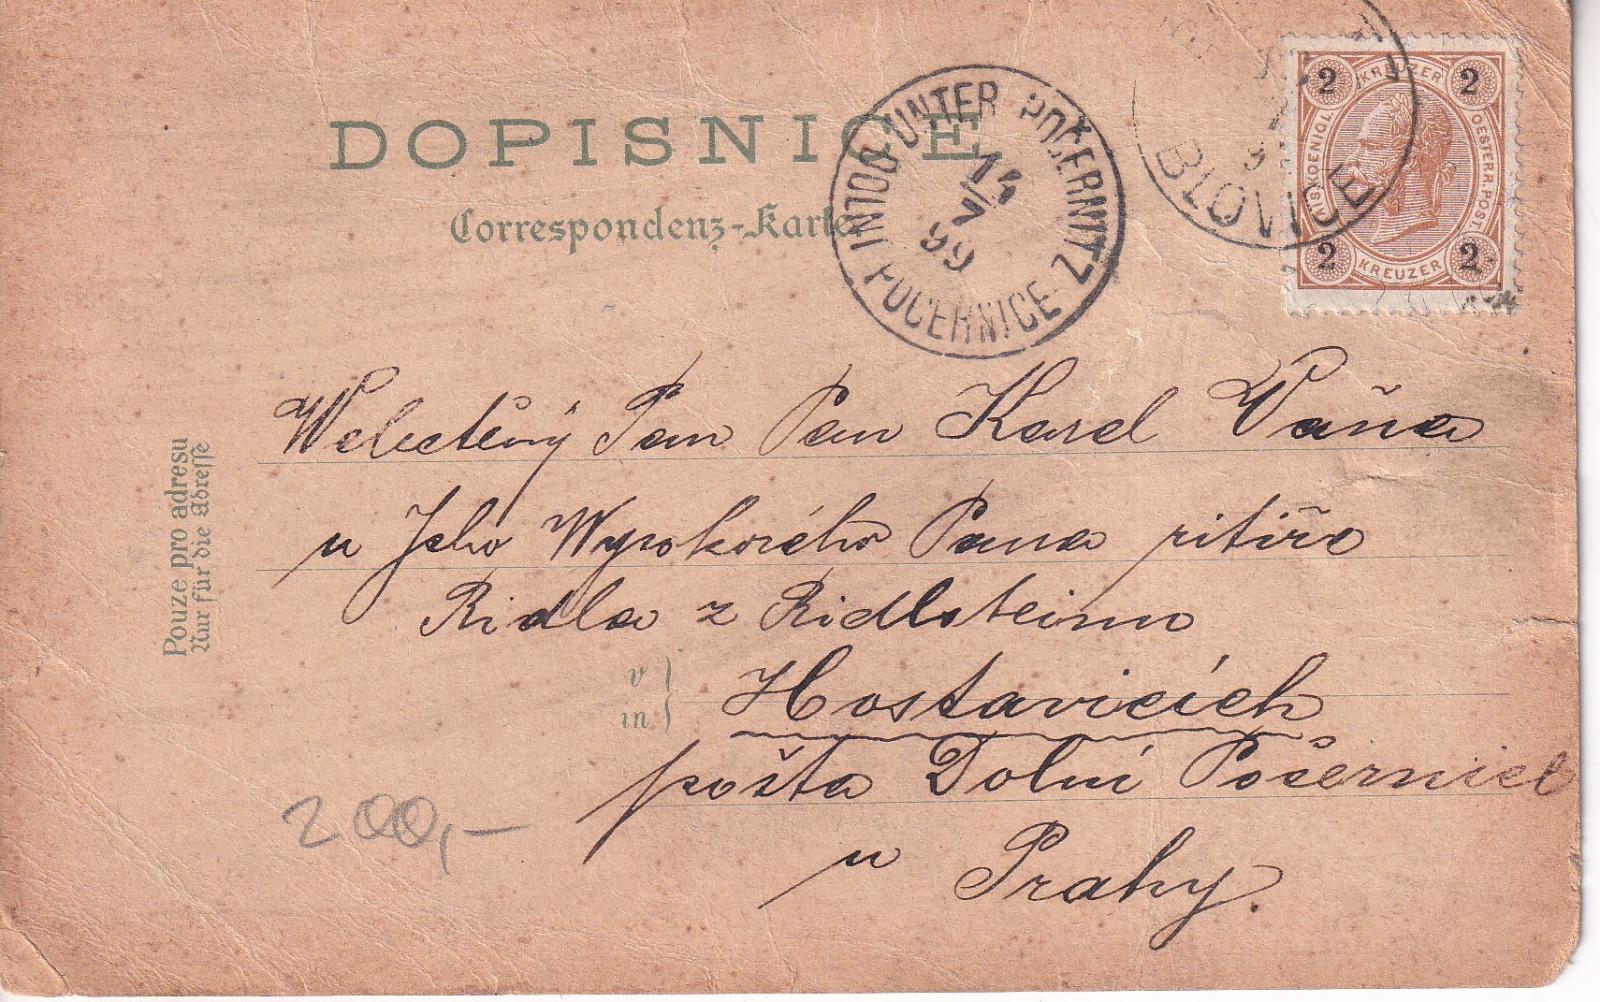 DOPISNICE
Correspondenz-Karte
UNTER POČERNITZ
DOLNÍ POČERNICE
14
7
99
BLOVICE
2 KREUZER 2
OESTERR. POST.
2 KREUZER 2
Pouze pro adresu
Nur für die Adresse
Welectěný Pan Pan Karel Váňa
u Jeho Wysokorého Pana ritířo
Ridla z Ridlsteinu
v
in
Hostavicích
pošta Dolní Počernice
u Prahy.
200,-